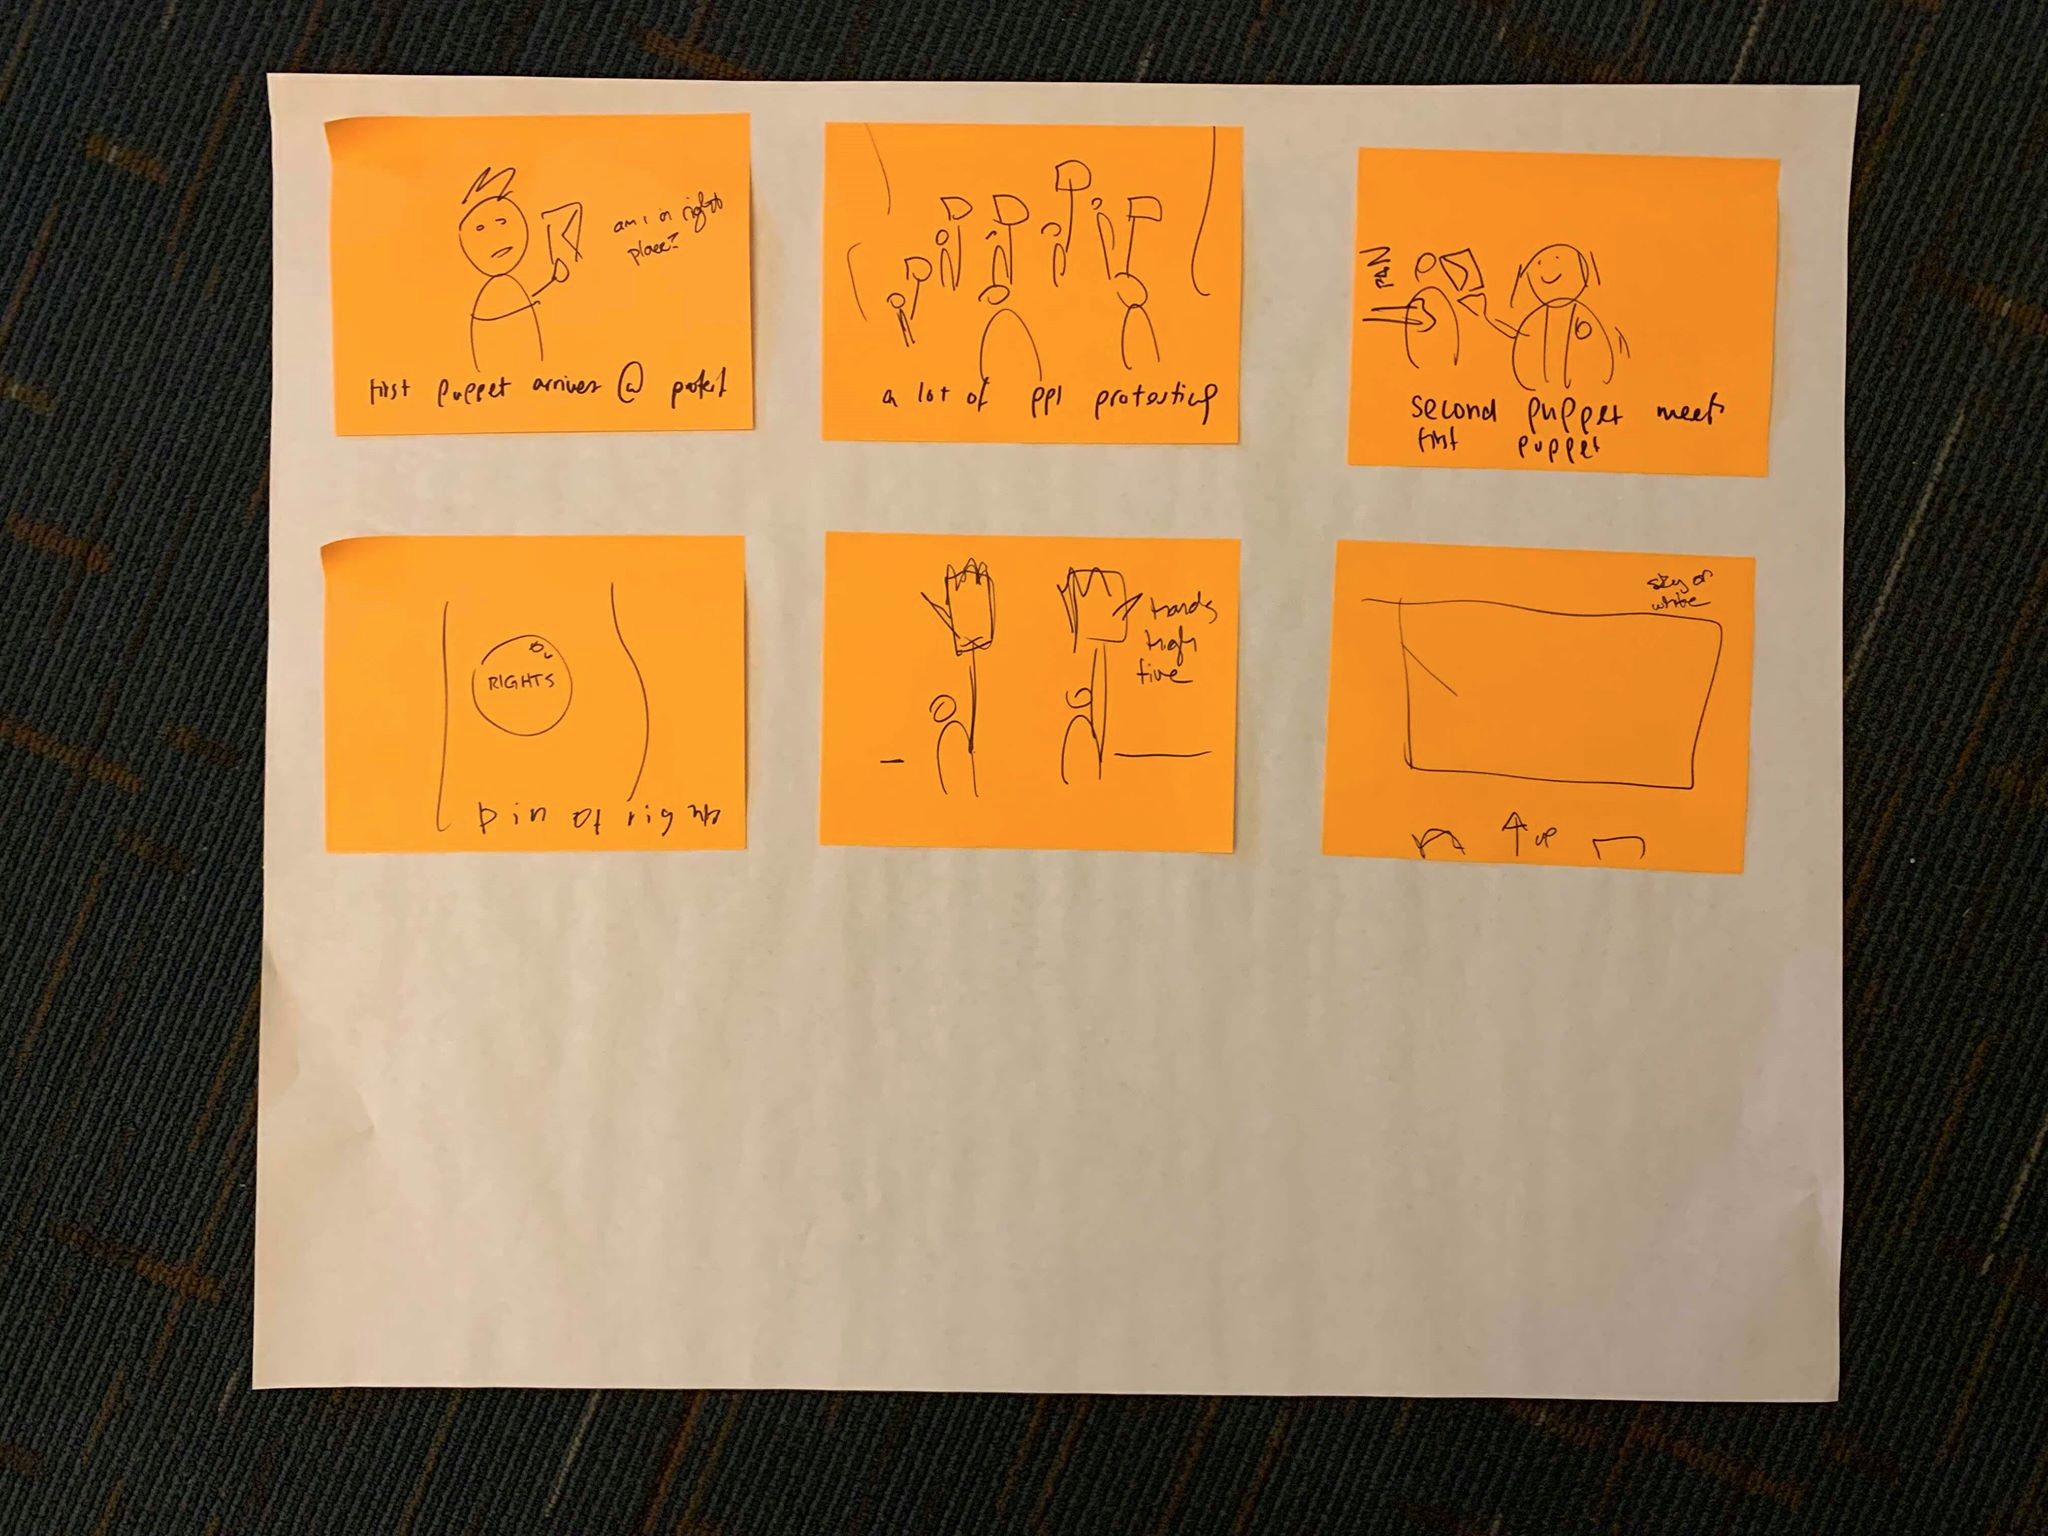 am i in right
place?
first puppet arrives @ protest
a lot of ppl protesting
PAN
second puppet meets
first puppet
RIGHTS
pin of rights
Hands
high
five
sky or
white
up